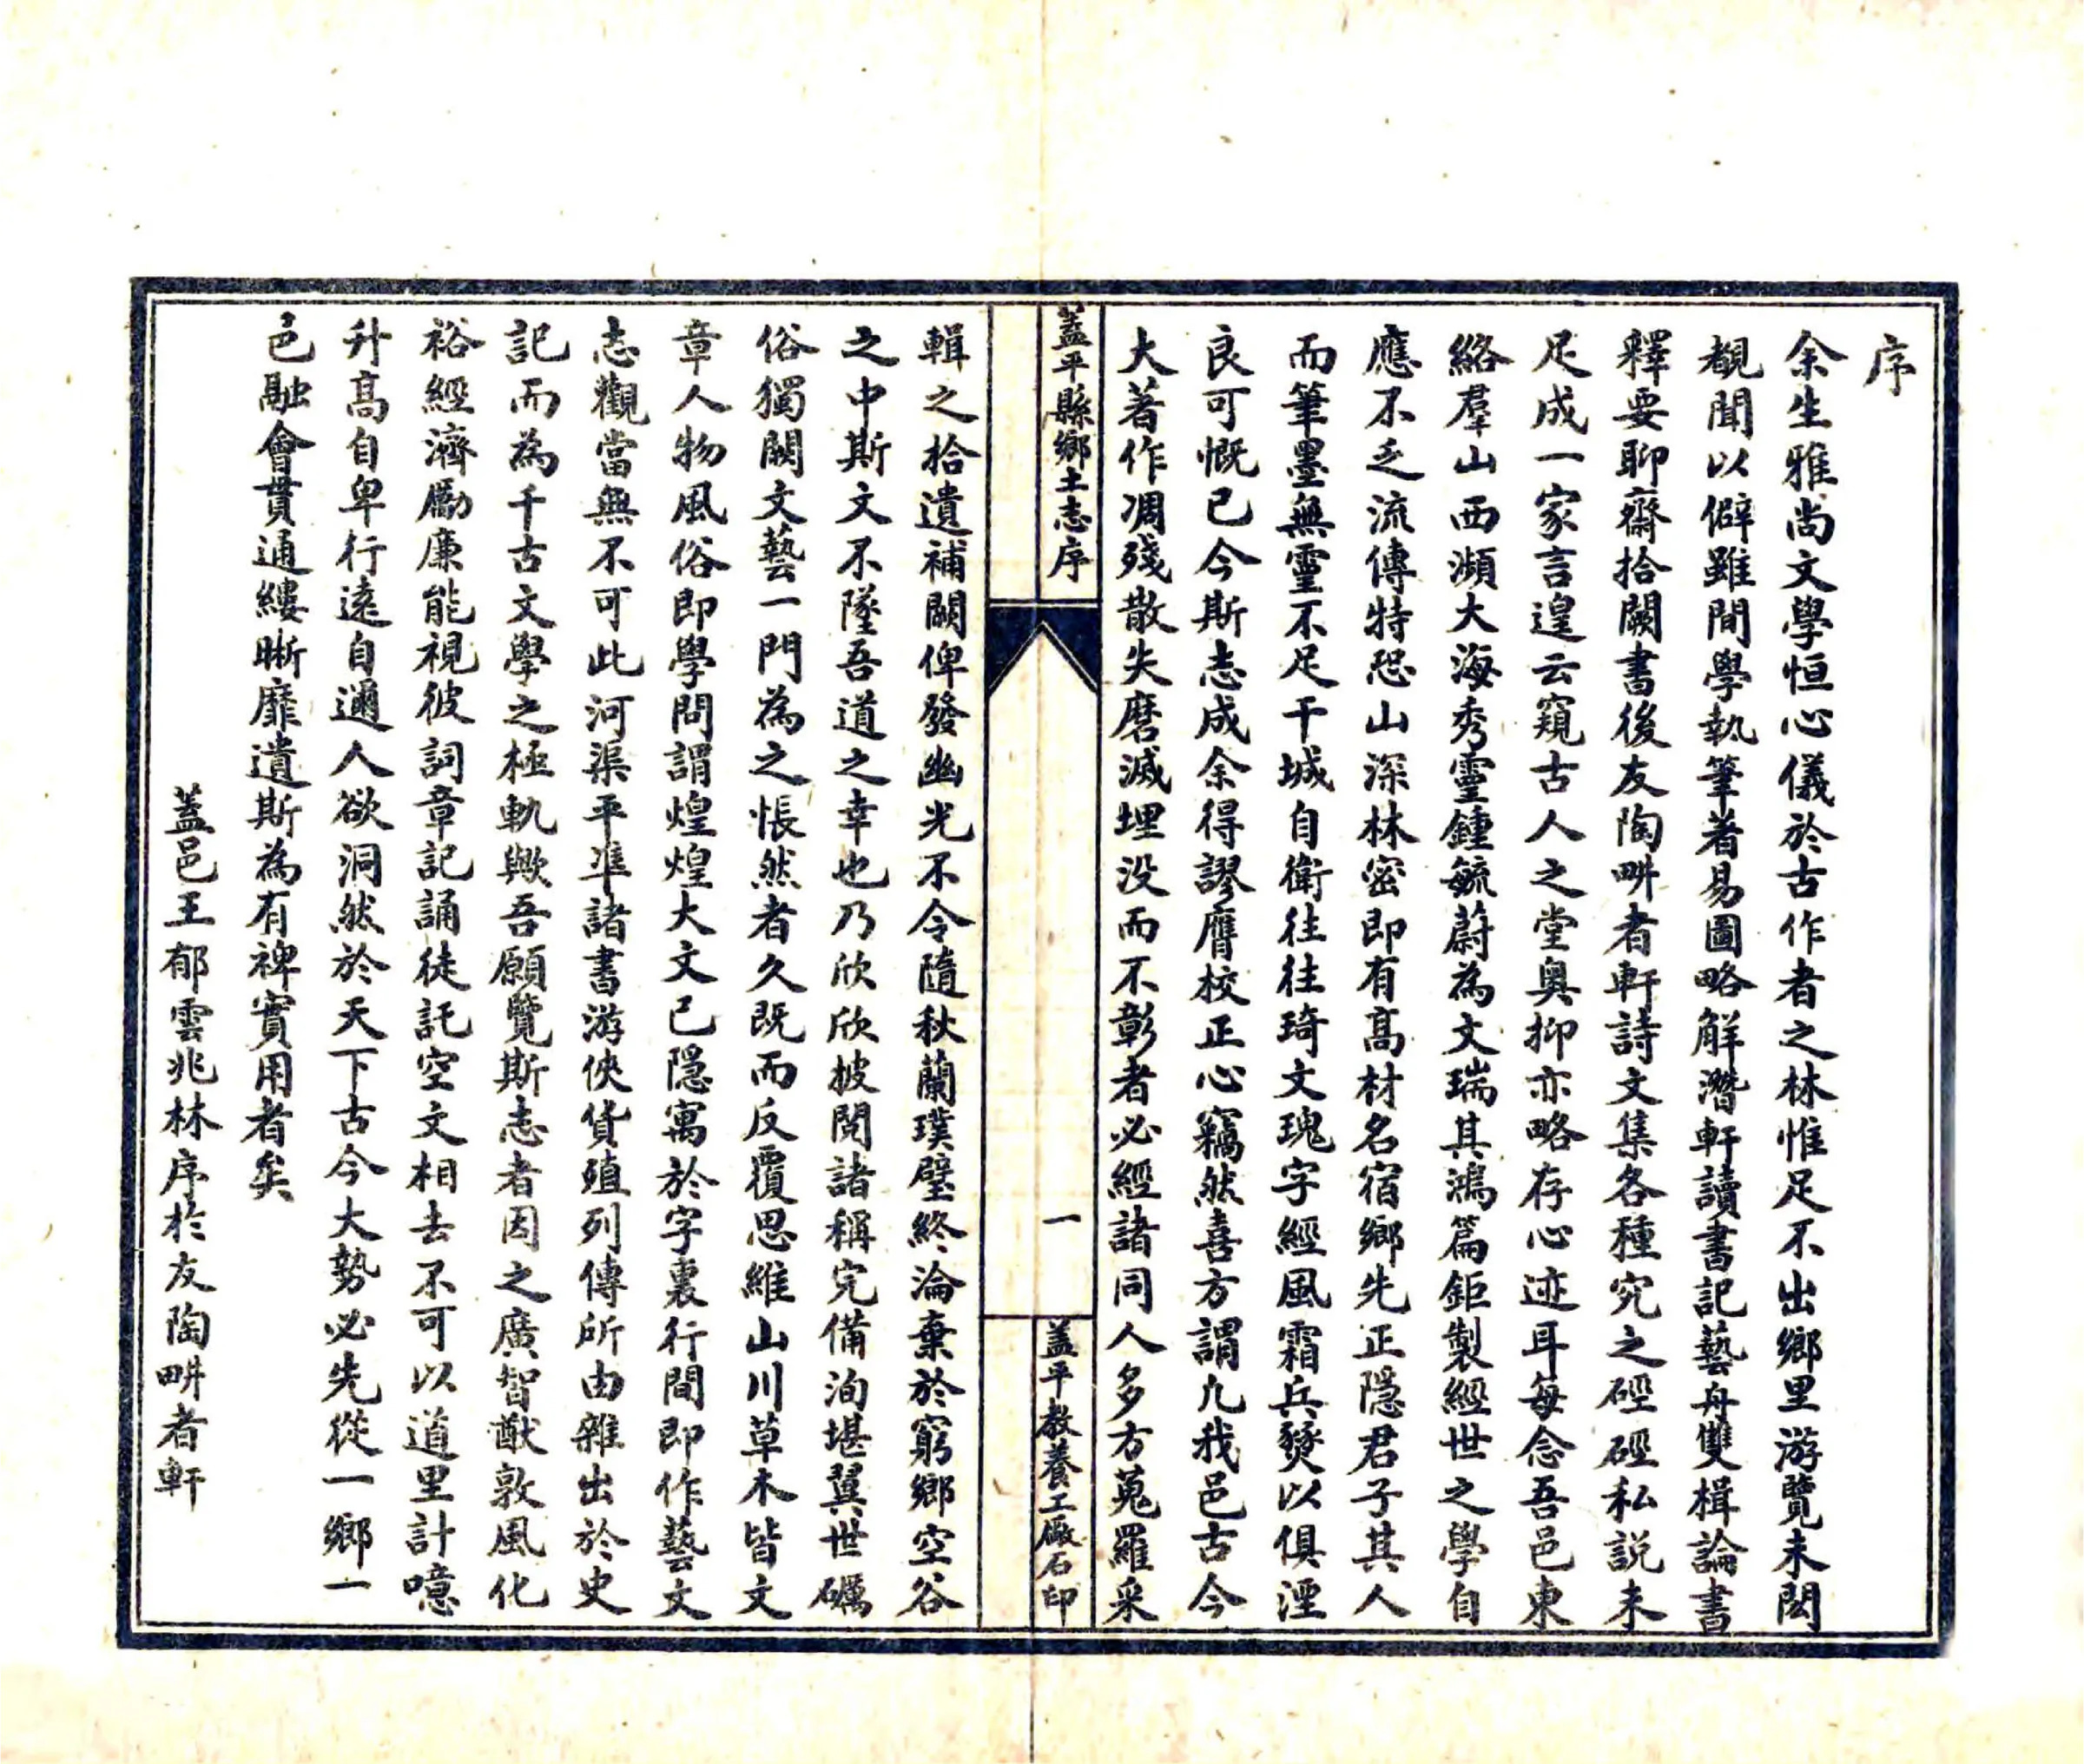 序
余生雅尚文學恒心儀於古作者之林惟足不出鄉里游覽未閎
覩聞以僻雖間學執筆著易圖略解潛軒讀書記藝舟雙楫論書
釋要聊齋拾闕書後友陶畊者軒詩文集各種究之硜硜私説未
足成一家言遑云窺古人之堂奥抑亦略存心迹耳每念吾邑東
絡羣山西瀕大海秀靈鍾毓蔚為文瑞其鴻篇鉅製經世之學自
應不乏流傳特恐山深林密即有高材名宿鄉先正隱君子其人
而筆墨無靈不足干城自衛往往琦文瑰字經風霜兵燹以俱湮
良可慨已今斯志成余得謬膺校正心竊然喜方謂凡我邑古今
大著作凋殘散失磨滅埋没而不彰者必經諸同人多方蒐羅采
蓋平縣鄉土志序
一
蓋平教養工廠石印
輯之拾遺補闕俾發幽光不令隨秋蘭璞璧終淪棄於窮鄉空谷
之中斯文不墜吾道之幸也乃欣欣披閱諸稱完備洵堪翼世礪
俗獨闕文藝一門為之悵然者久既而反覆思維山川草木皆文
章人物風俗即學問謂煌煌大文已隱寓於字裏行間即作藝文
志觀當無不可此河渠平準諸書游俠貨殖列傳所由雜出於史
記而為千古文學之極軌歟吾願覽斯志者因之廣智猷敦風化
裕經濟勵廉能視彼詞章記誦徒託空文相去不可以道里計噫
升高自卑行遠自邇人欲洞然於天下古今大勢必先從一鄉一
邑融會貫通縷晰靡遺斯為有裨實用者矣
蓋邑王郁雲兆林序於友陶畊者軒